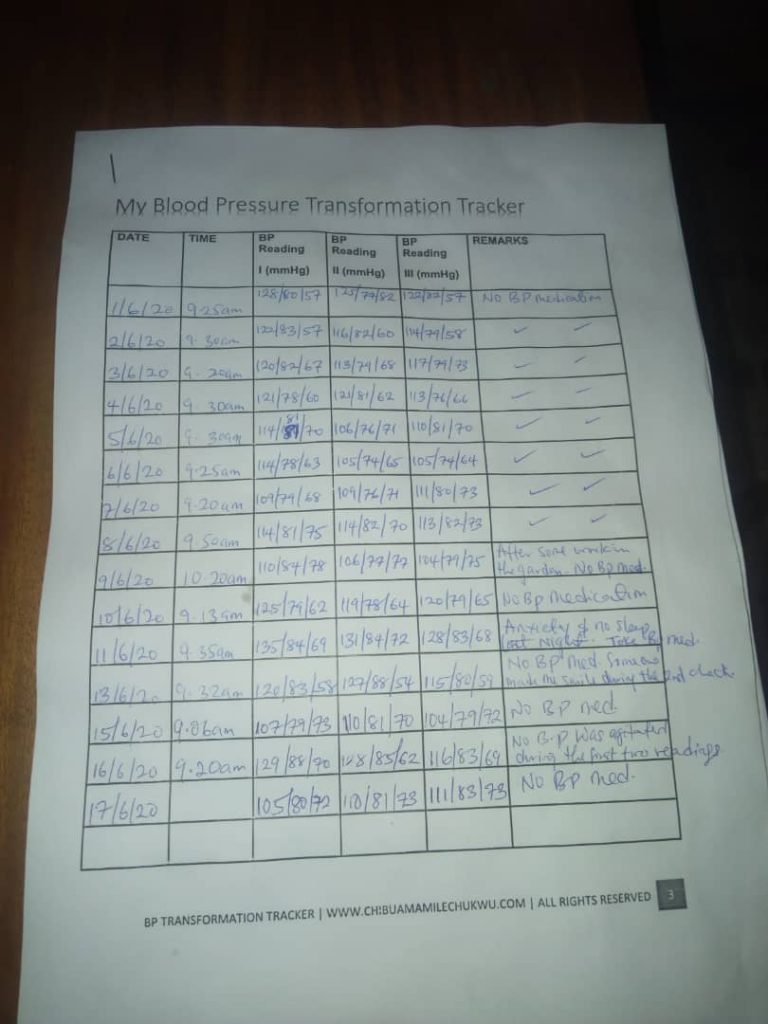 My Blood Pressure Transformation Tracker
DATE TIME BP Reading I (mmHg) BP Reading II (mmHg) BP Reading III (mmHg) REMARKS
1/6/20 9.25am 128/80/57 125/79/82 122/82/57 No BP medication
2/6/20 9.30am 122/83/57 116/82/60 114/79/58 ✓ ✓
3/6/20 9.20am 120/82/67 113/79/68 117/79/73 ✓ ✓
4/6/20 9.30am 121/78/60 121/81/62 113/76/66 ✓ ✓
5/6/20 9.30am 114/81/70 106/76/71 110/81/70 ✓ ✓
6/6/20 9.25am 114/78/63 105/74/65 105/74/64 ✓ ✓
7/6/20 9.20am 109/79/68 109/76/71 111/80/73 ✓ ✓
8/6/20 9.50am 114/81/75 114/82/70 113/82/73 ✓ ✓
9/6/20 10.20am 110/84/78 106/77/77 104/79/75 After some work in
the garden. No BP med.
10/6/20 9.13am 125/79/62 119/78/64 120/79/65 No Bp medication
11/6/20 9.35am 135/84/69 131/84/72 128/83/68 Anxiety of no sleep
last night. Take Bp med.
13/6/20 9.32am 120/83/58 127/88/54 115/80/59 No BP med. Someone
made me smile during the 2nd check.
15/6/20 9.06am 107/79/73 110/81/70 104/79/72 No BP med.
16/6/20 9.20am 129/88/70 /85/62 116/83/69 No B.P Was agitated
during the first two readings.
17/6/20 105/80/72 110/81/73 111/83/73 No BP med.
BP TRANSFORMATION TRACKER | WWW.CHIBUAMAMILECHUKWU.COM | ALL RIGHTS RESERVED 3